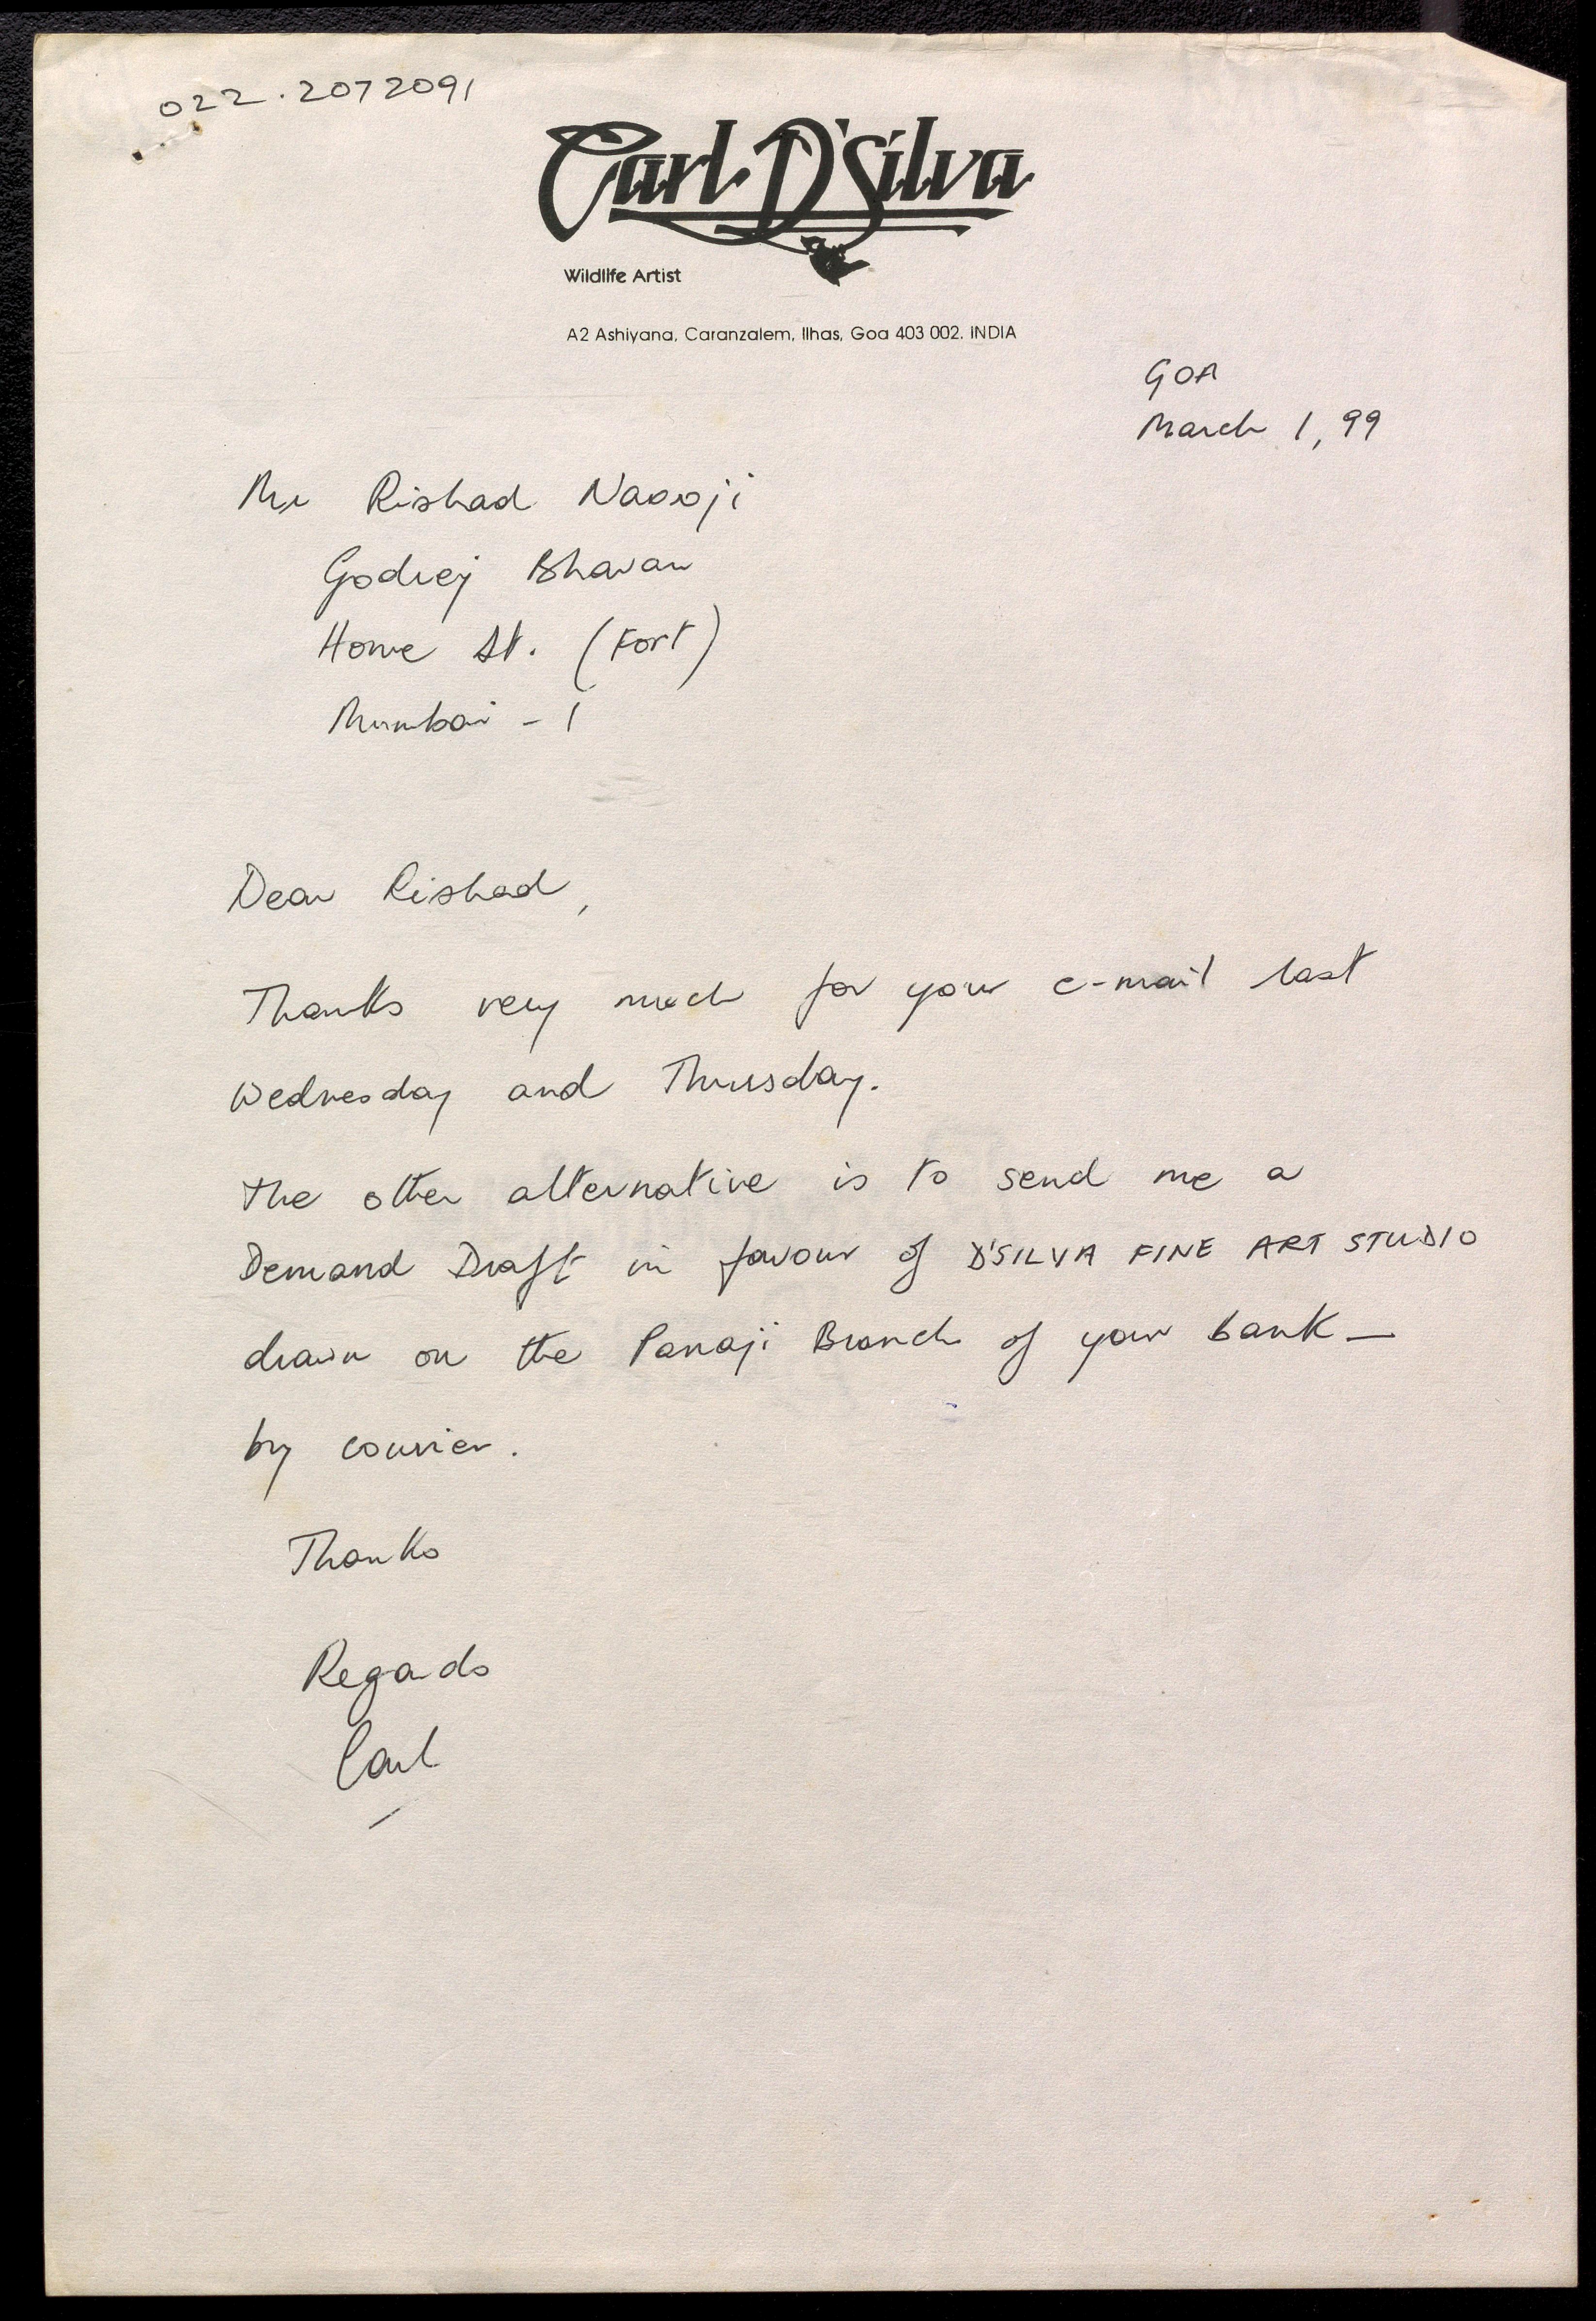 022.2072091
Carl D'Silva
Wildlife Artist
A2 Ashiyana, Caranzalem, Ilhas, Goa 403 002. INDIA
GOA
March 1, 99
Mr Rishad Naoroji
Godrej Bhavan
Home St. (Fort)
Mumbai - 1
Dear Rishad,
Thanks very much for your e-mail last
Wednesday and Thursday.
The other alternative is to send me a
Demand Draft in favour of D'SILVA FINE ART STUDIO
drawn on the Panaji Branch of your bank —
by courier.
Thanks
Regards
Carl